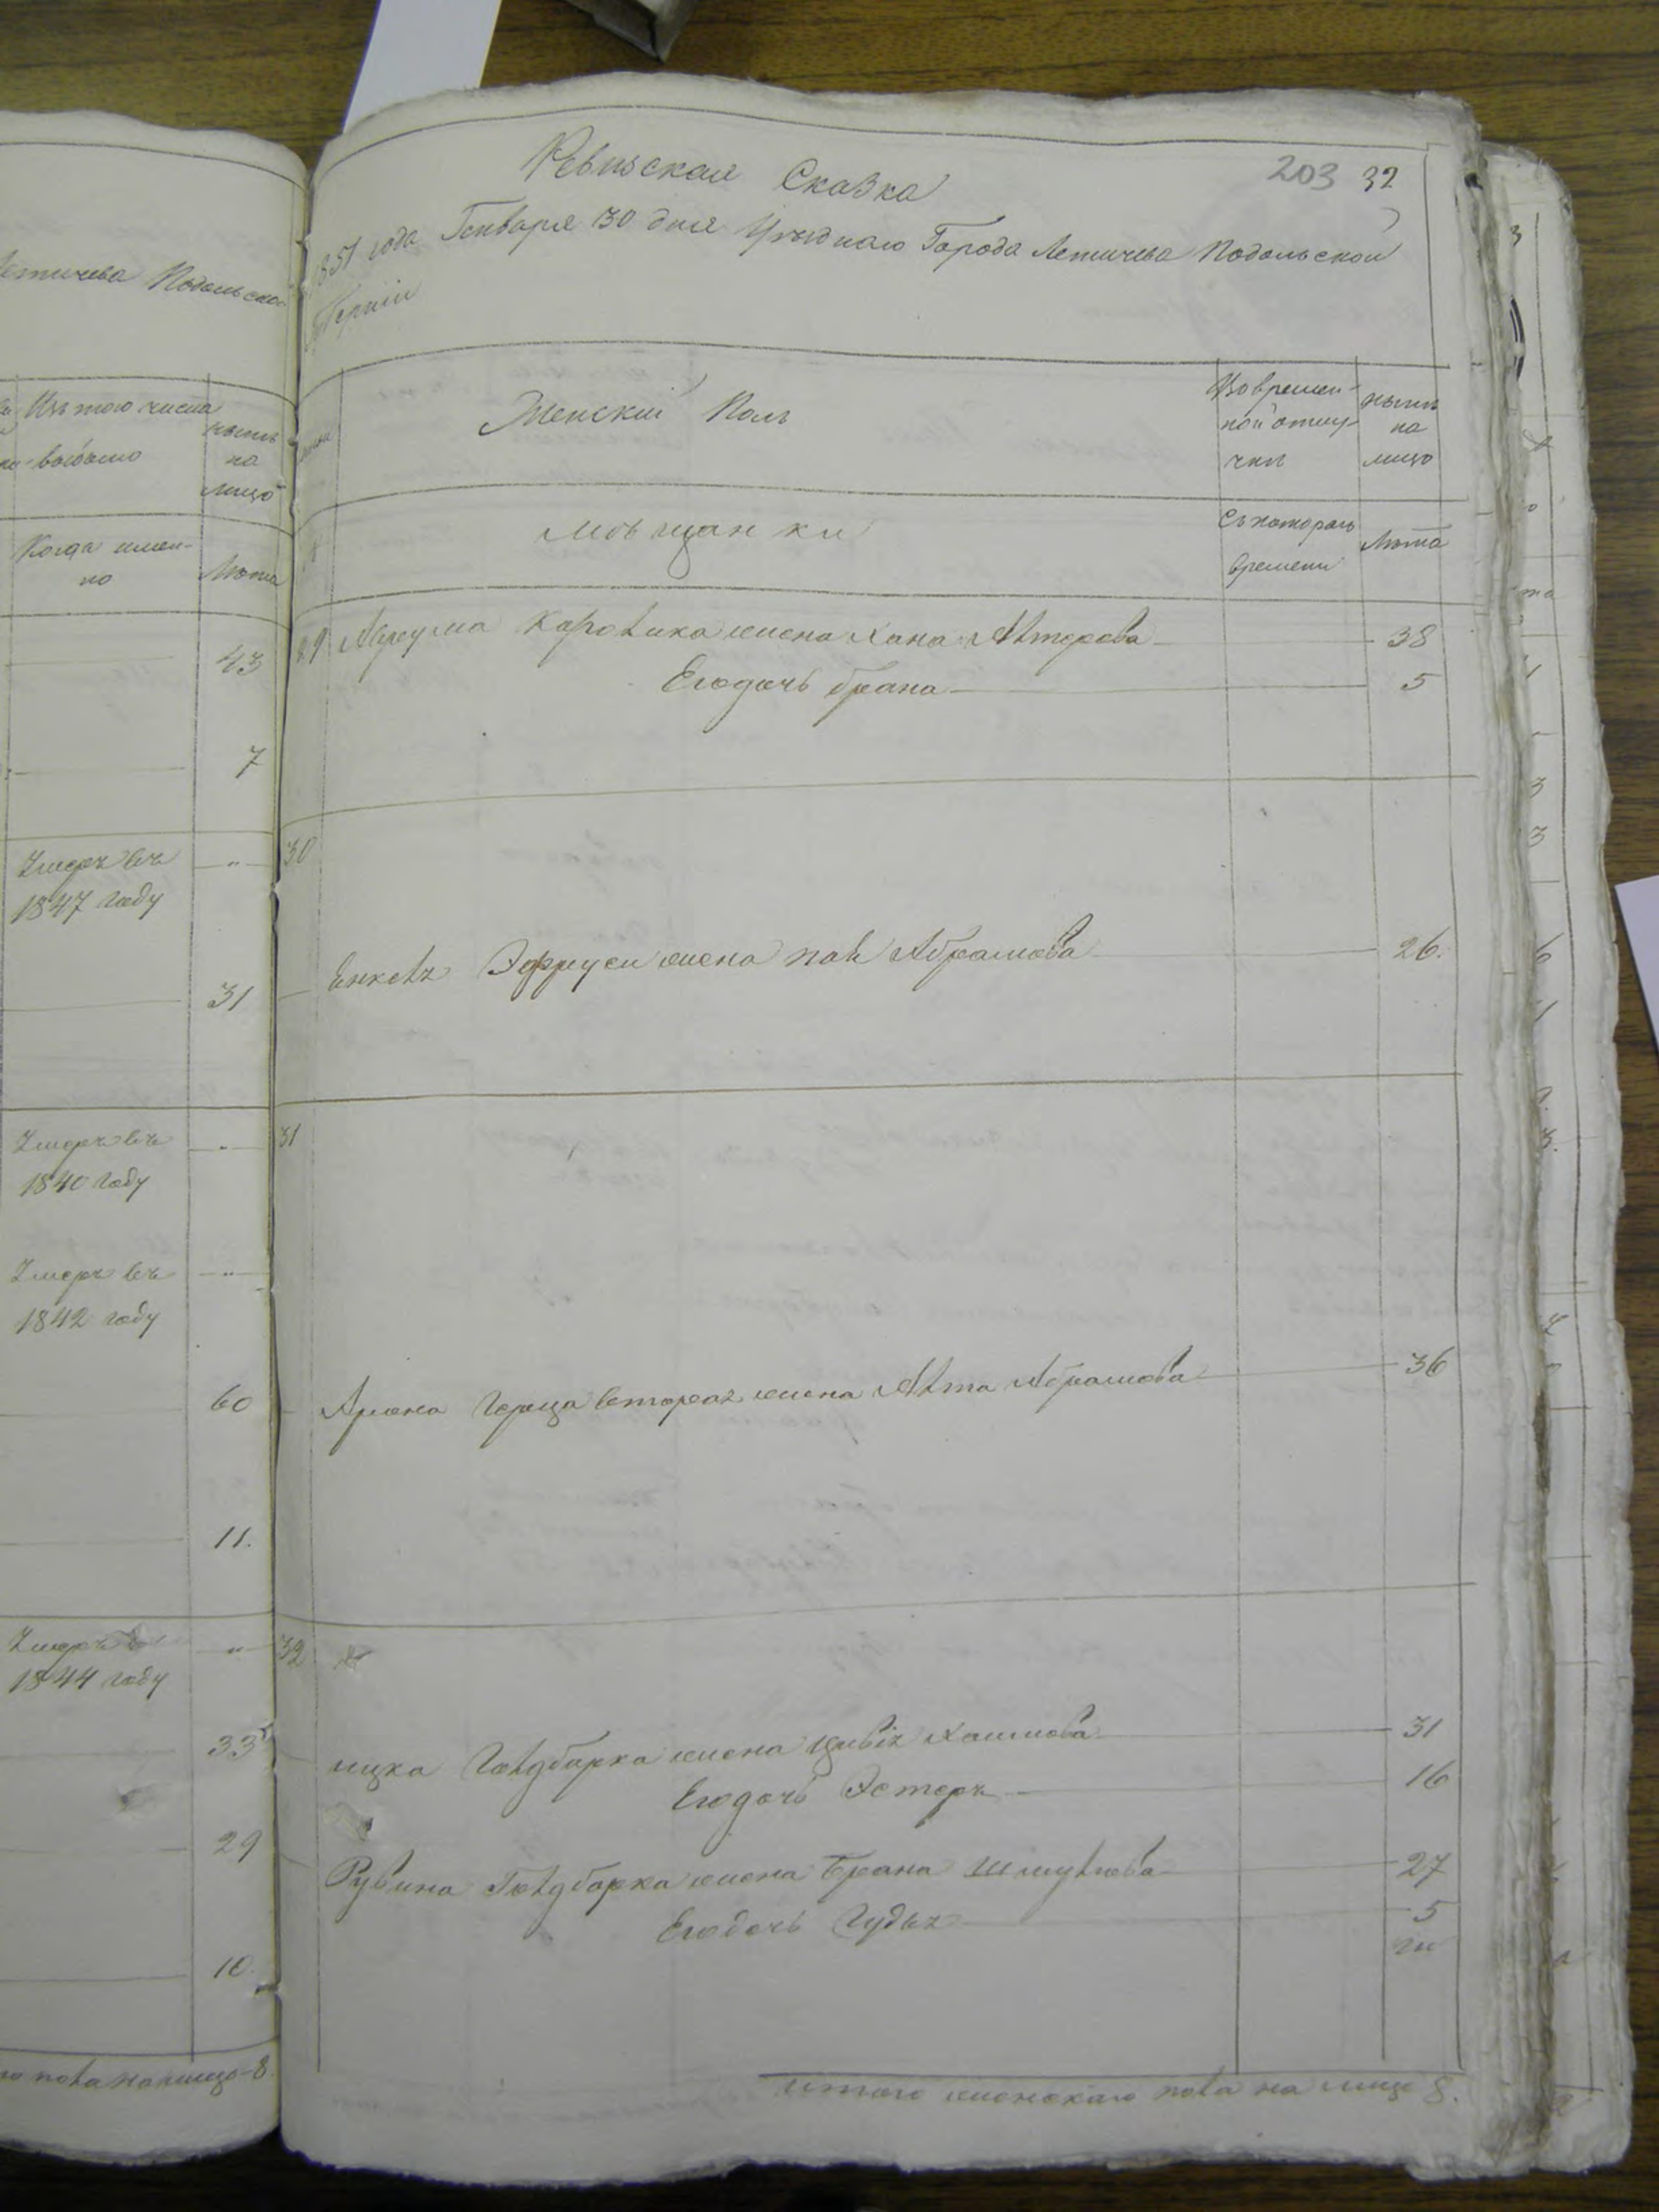 Летичева Подольской
Изъ того числа
выбыло
нынѣ
на
лицо
Когда имен-
но
Лѣта
43
7
Умеръ въ
1847 году
31
Умеръ въ
1840 году
Умеръ въ
1842 году
60
11.
Умеръ въ
1844 году
33
29
10.
пола на лицо 8
203 32
Ревизская Сказка
1851 года Генваря 30 дня Уѣзднаго Города Летичева Подольской
Губерніи
Женскій Полъ
Во времен-
ной отлу-
чки
нынѣ
на
лицо
Мѣщанки
Съ котораго
времени
Лѣта
29 Каролика жена Хана 38
Его дочь брана 5
30
Эфруси жена Абрамова 26.
31
Арона Герца жена Абрамова 36
32
ицка Голдбарка жена цивіа Хаимова 31
Его дочь Эстеръ 16
Рувина Голдбарка жена Брана Шмулова 27
Его дочь 5
итого женскаго пола на лицо 8.